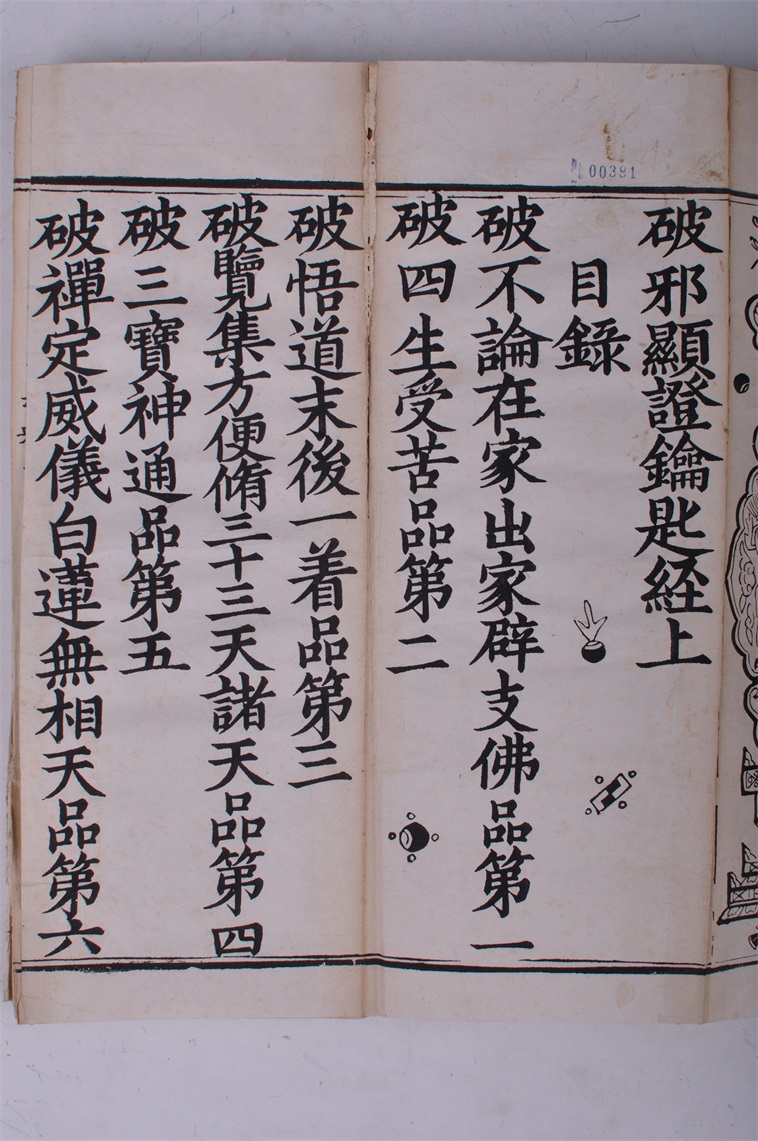 00391
破邪顯證鑰匙経上
目録
破不論在家出家辟支佛品第一
破四生受苦品第二
破悟道末後一着品第三
破覽集方便脩三十三天諸天品第四
破三寶神通品第五
破禪定威儀白蓮無相天品第六